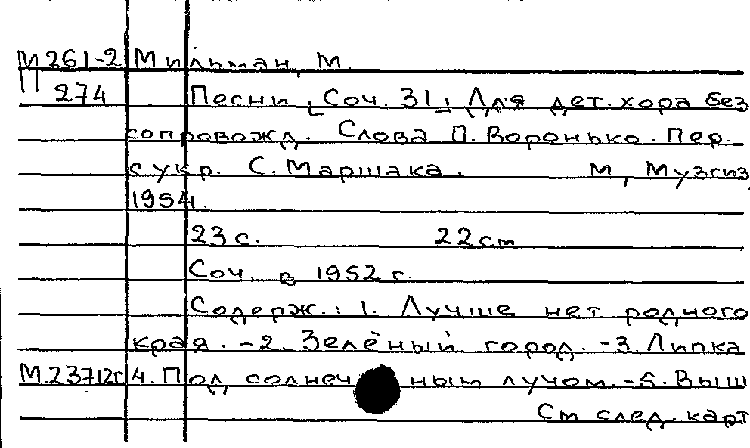 М 261-2 Мильман, М.
274 Песни [Соч. 31]. Для дет. хора без
сопровожд. Слова П. Воронько. Пер.
с укр. С. Маршака. М, Музгиз,
1954.
23 с. 22 см
Соч. в 1952 г.
Содерж.: 1. Лучше нет родного
края. -2. Зелёный город. -3. Липка
М.23712г 4. Под солнечным лучом. -5. Выш
См след. карт